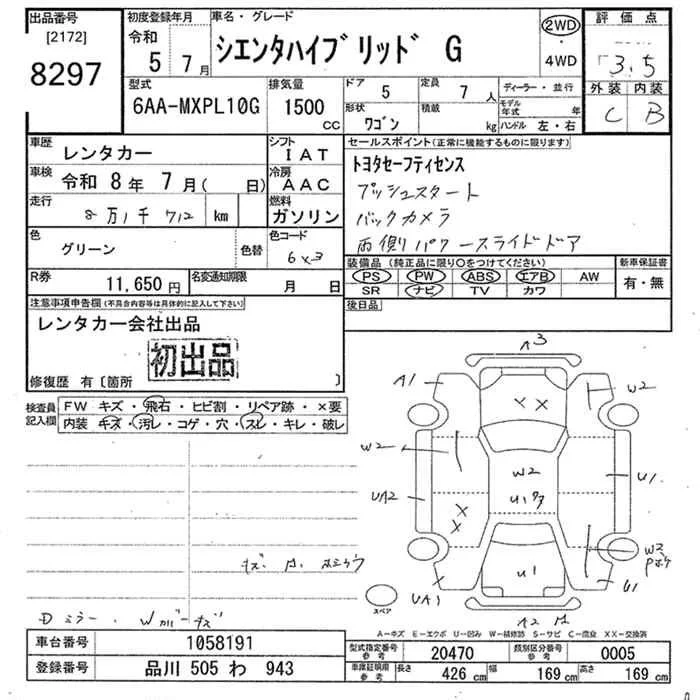 出品番号
[2172]
8297
初度登録年月
令和
5 7月
車名・グレード
シエンタハイブリッド G
2WD
・
4WD
評価点
3.5
外装 内装
C B
型式
6AA-MXPL10G
排気量
1500
CC
ドア
5
定員
7 人
形状
ワゴン
積載
kg
ディーラー・並行
モデル年式 年
ハンドル 左・右
車歴
レンタカー
シフト
IAT
車検
令和 8年 7月( 日)
冷房
AAC
走行
8万1千712 km
燃料
ガソリン
色
グリーン
色替
色コード
6x3
R券
11,650円
名変通知期限
月 日
セールスポイント(正常に機能するものに限ります)
トヨタセーフティセンス
プッシュスタート
バックカメラ
両側パワースライドドア
装備品(純正品に限り○をつけてください)
PS PW ABS エアB AW
SR ナビ TV カワ
新車保証書
有・無
後日品
注意事項申告欄(不具合内容等は具体的に記入して下さい)
レンタカー会社出品
初出品
修復歴 有〔箇所 〕
検査員記入欄
FW キズ・飛石・ヒビ割・リペア跡・×要
内装 キズ・汚レ・コゲ・穴・スレ・キレ・破レ
A3
A1
W2
W2
U1
UA2
W2
W2
U1
UA1
U1
A2
スペア
Dミラー、Wカバーキズ
A-キズ E-エクボ U-凹み W-補修跡 S-サビ C-腐食 XX-交換済
車台番号
1058191
登録番号
品川 505 わ 943
型式指定番号
参考
20470
類別区分番号
参考
0005
車庫証明用
参考
長さ 426 cm
幅 169 cm
高さ 169 cm